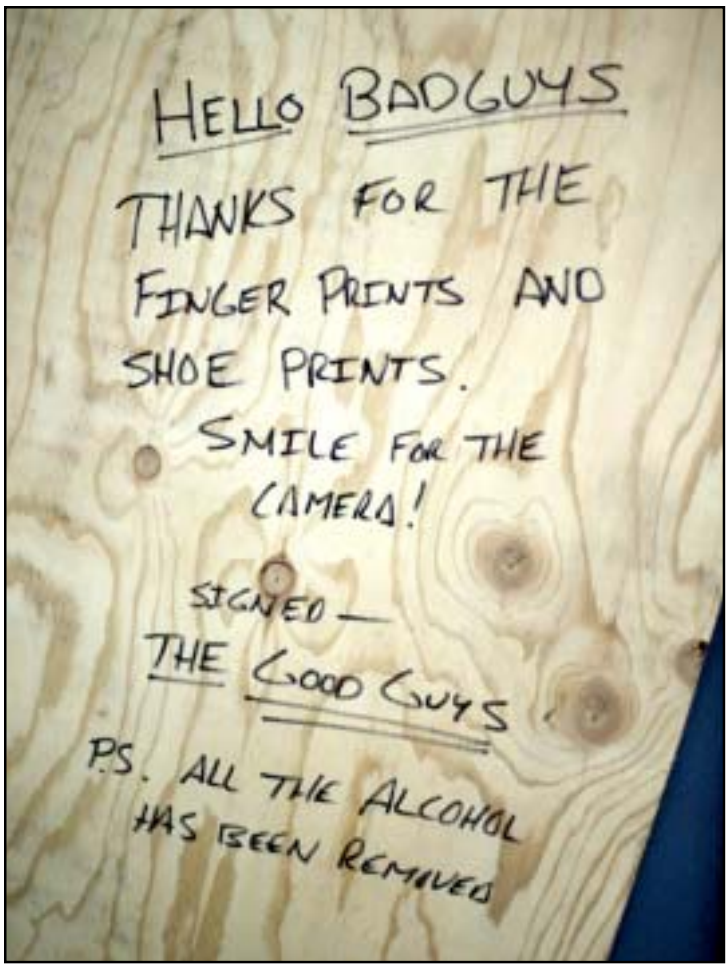 HELLO BADGUYS
THANKS FOR THE
FINGER PRINTS AND
SHOE PRINTS.
SMILE FOR THE
CAMERA!
SIGNED —
THE GOOD GUYS.
P.S. ALL THE ALCOHOL
HAS BEEN REMOVED